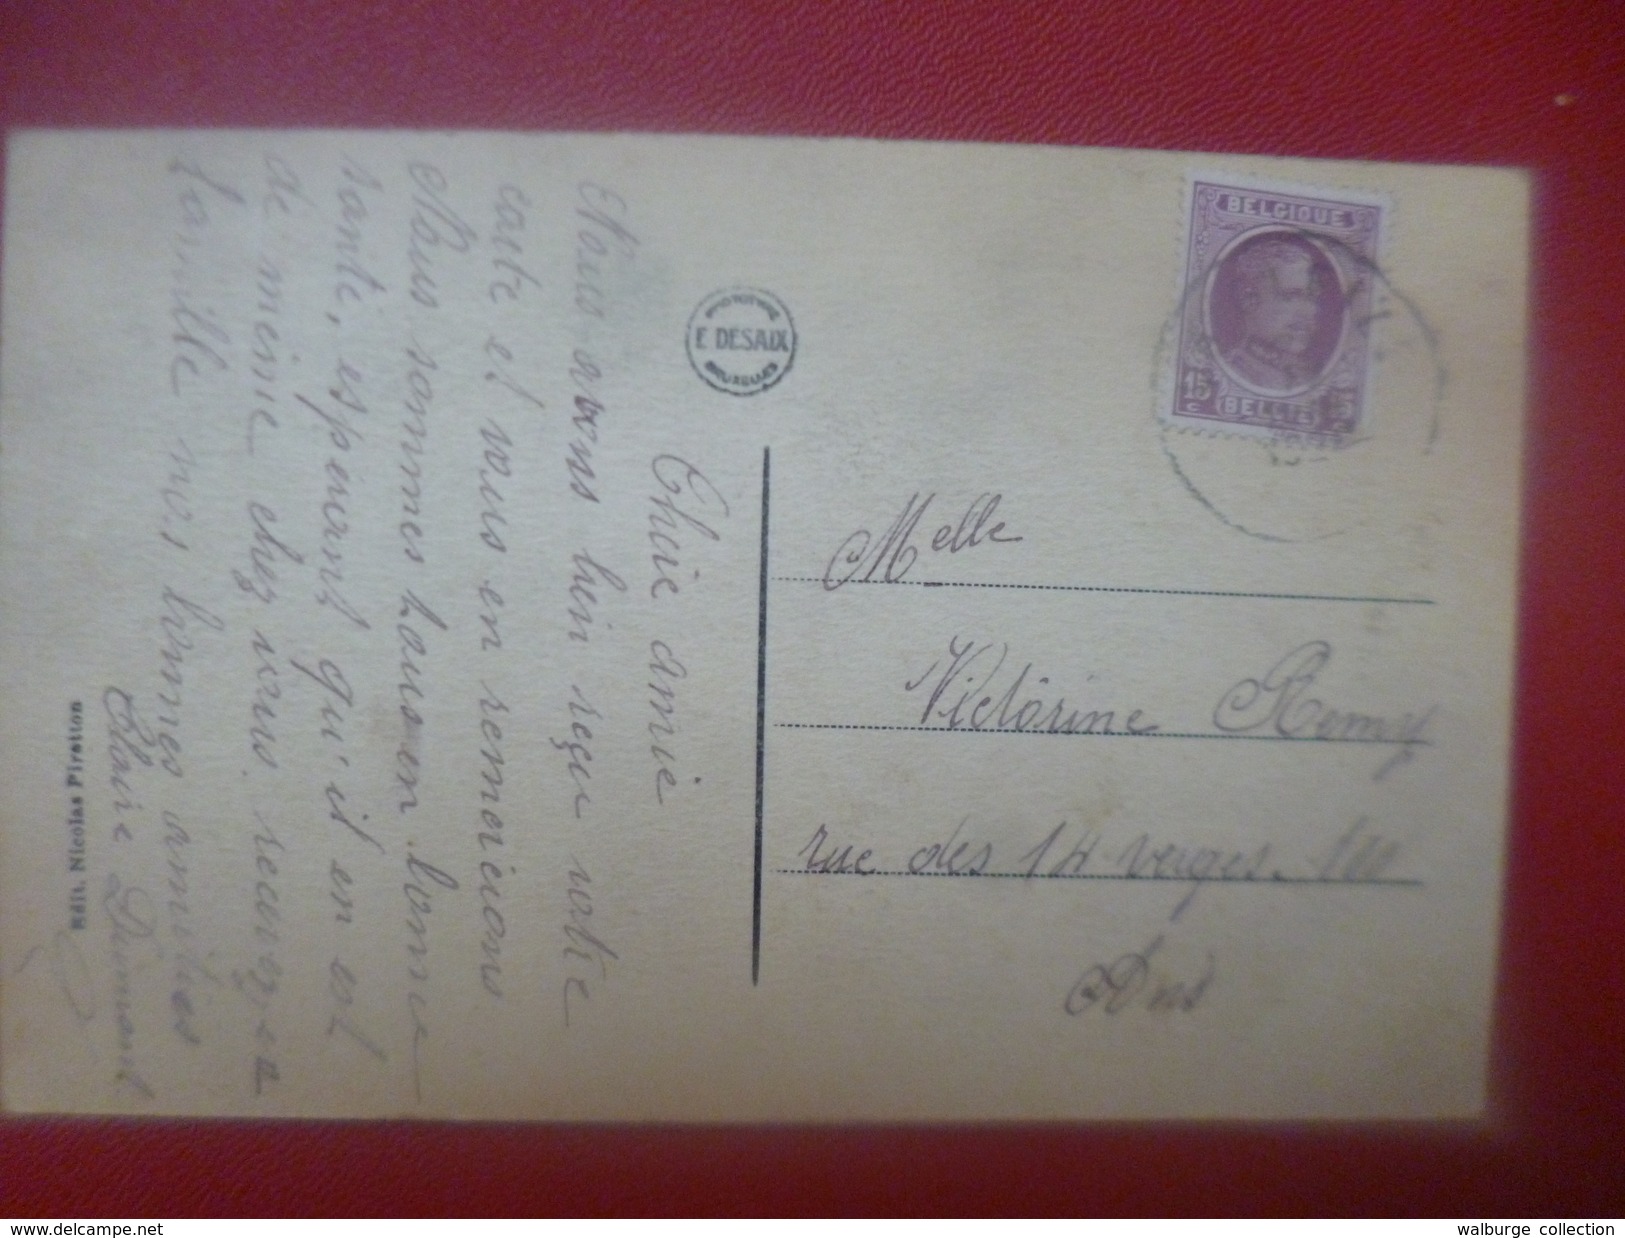 Chère amie
Nous avons bien reçu votre
carte et vous en remercions.
Nous sommes tous en bonne
santé, espérant qu'il en est
de même chez vous. recevez en
famille nos bonnes amitiés
Claire Dumont
Edit. Nicolas Piretton
PHOTOTYPIE
E. DESAIX
BRUXELLES
BELGIQUE
15 c
BELGIË
Melle
Victorine Remy
rue des 14 verges. 100
Ans
www.delcampe.net
walburge collection